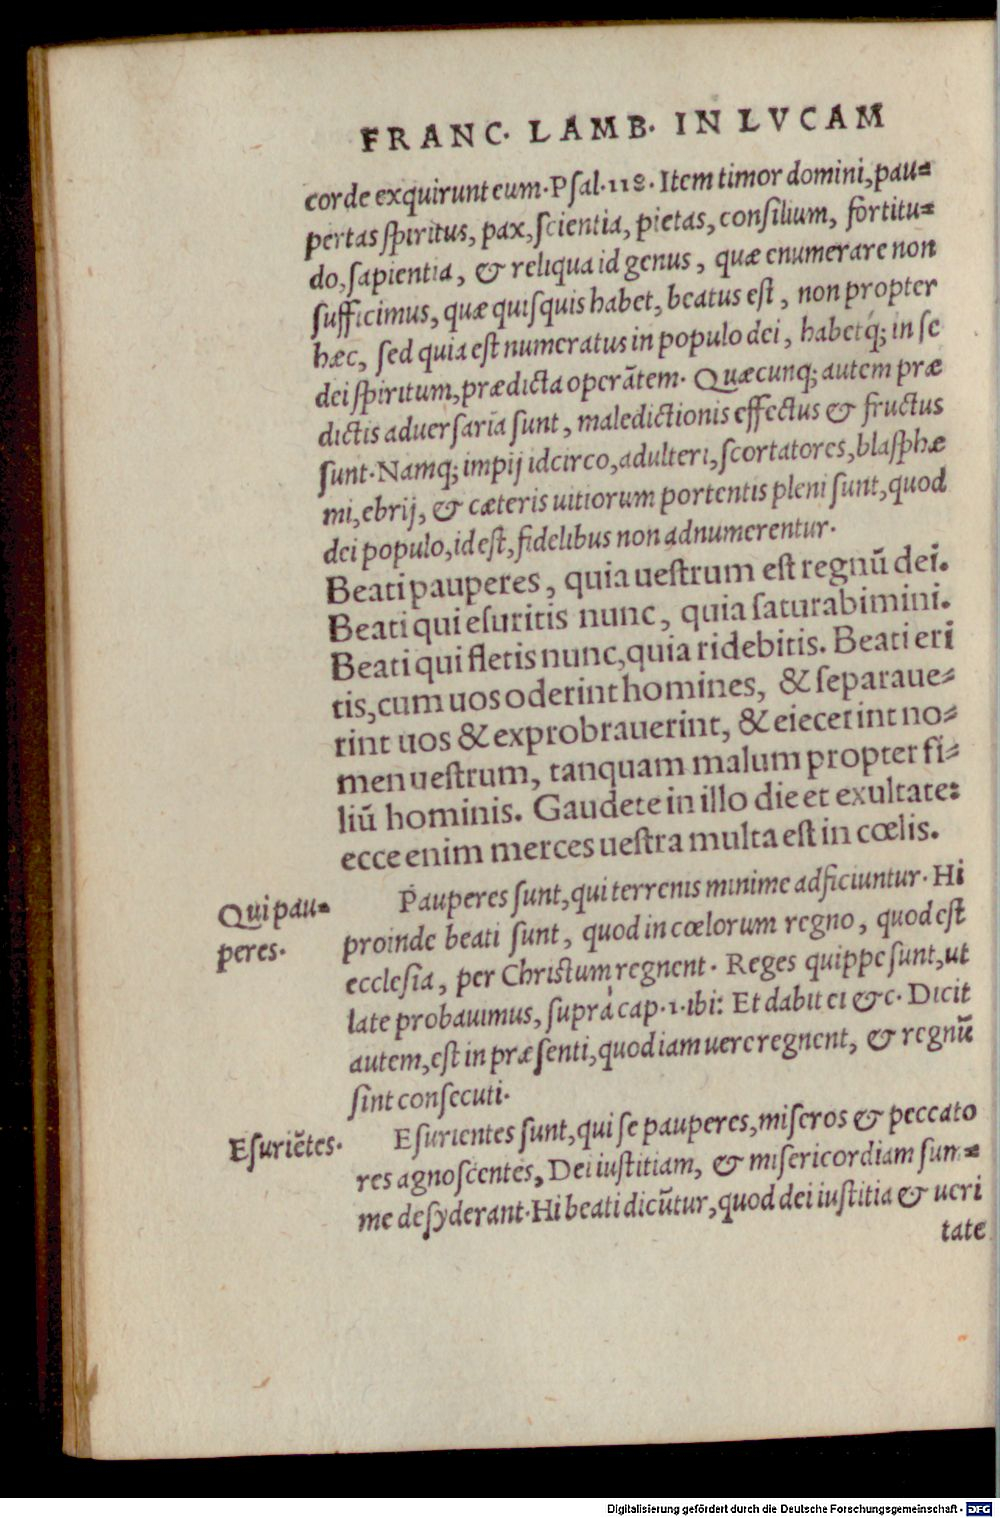 FRANC. LAMB. IN LVCAM
corde exquirunt eum. Psal. 118. Item timor domini, pau-
pertas spiritus, pax, scientia, pietas, consilium, fortitu-
do, sapientia, & reliqua id genus, quæ enumerare non
sufficimus, quæ quisquis habet, beatus est, non propter
hæc, sed quia est numeratus in populo dei, habetq́; in se
dei spiritum, prædicta operãtem. Quæcunq; autem præ
dictis aduersaria sunt, maledictionis effectus & fructus
sunt. Namq; impij idcirco, adulteri, scortatores, blasphæ
mi, ebrij, & cæteris uitiorum portentis pleni sunt, quod
dei populo, id est, fidelibus non adnumerentur.
Beati pauperes, quia uestrum est regnũ dei.
Beati qui esuritis nunc, quia saturabimini.
Beati qui fletis nunc, quia ridebitis. Beati eri
tis, cum uos oderint homines, & separaue-
rint uos & exprobrauerint, & eiecerint no-
men uestrum, tanquam malum propter fi-
liũ hominis. Gaudete in illo die et exultate:
ecce enim merces uestra multa est in cœlis.
Qui pau-
peres.
Pauperes sunt, qui terrenis minime adficiuntur. Hi
proinde beati sunt, quod in cœlorum regno, quod est
ecclesia, per Christum regnent. Reges quippe sunt, ut
late probauimus, suprà cap. 1. ibi: Et dabit ei &c. Dicit
autem, est in præsenti, quod iam uere regnent, & regnũ
sint consecuti.
Esuriẽtes.
Esurientes sunt, qui se pauperes, miseros & peccato
res agnoscentes, Dei iustitiam, & misericordiam sum-
me desyderant. Hi beati dicũtur, quod dei iustitia & ueri
tate
Digitalisierung gefördert durch die Deutsche Forschungsgemeinschaft - DFG